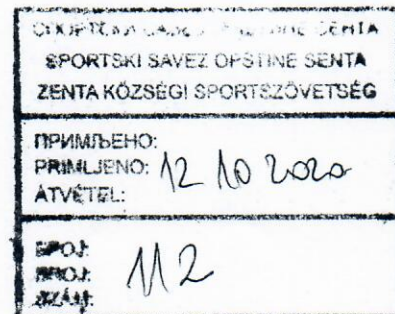 СПОРТСКИ САВЕЗ ОПШТИНЕ СЕНТА
SPORTSKI SAVEZ OPŠTINE SENTA
ZENTA KÖZSÉGI SPORTSZÖVETSÉG
ПРИМЉЕНО:
PRIMLJENO: 12 10 2020
ÁTVÉTEL:
БРОЈ:
BROJ: 112
SZÁM: